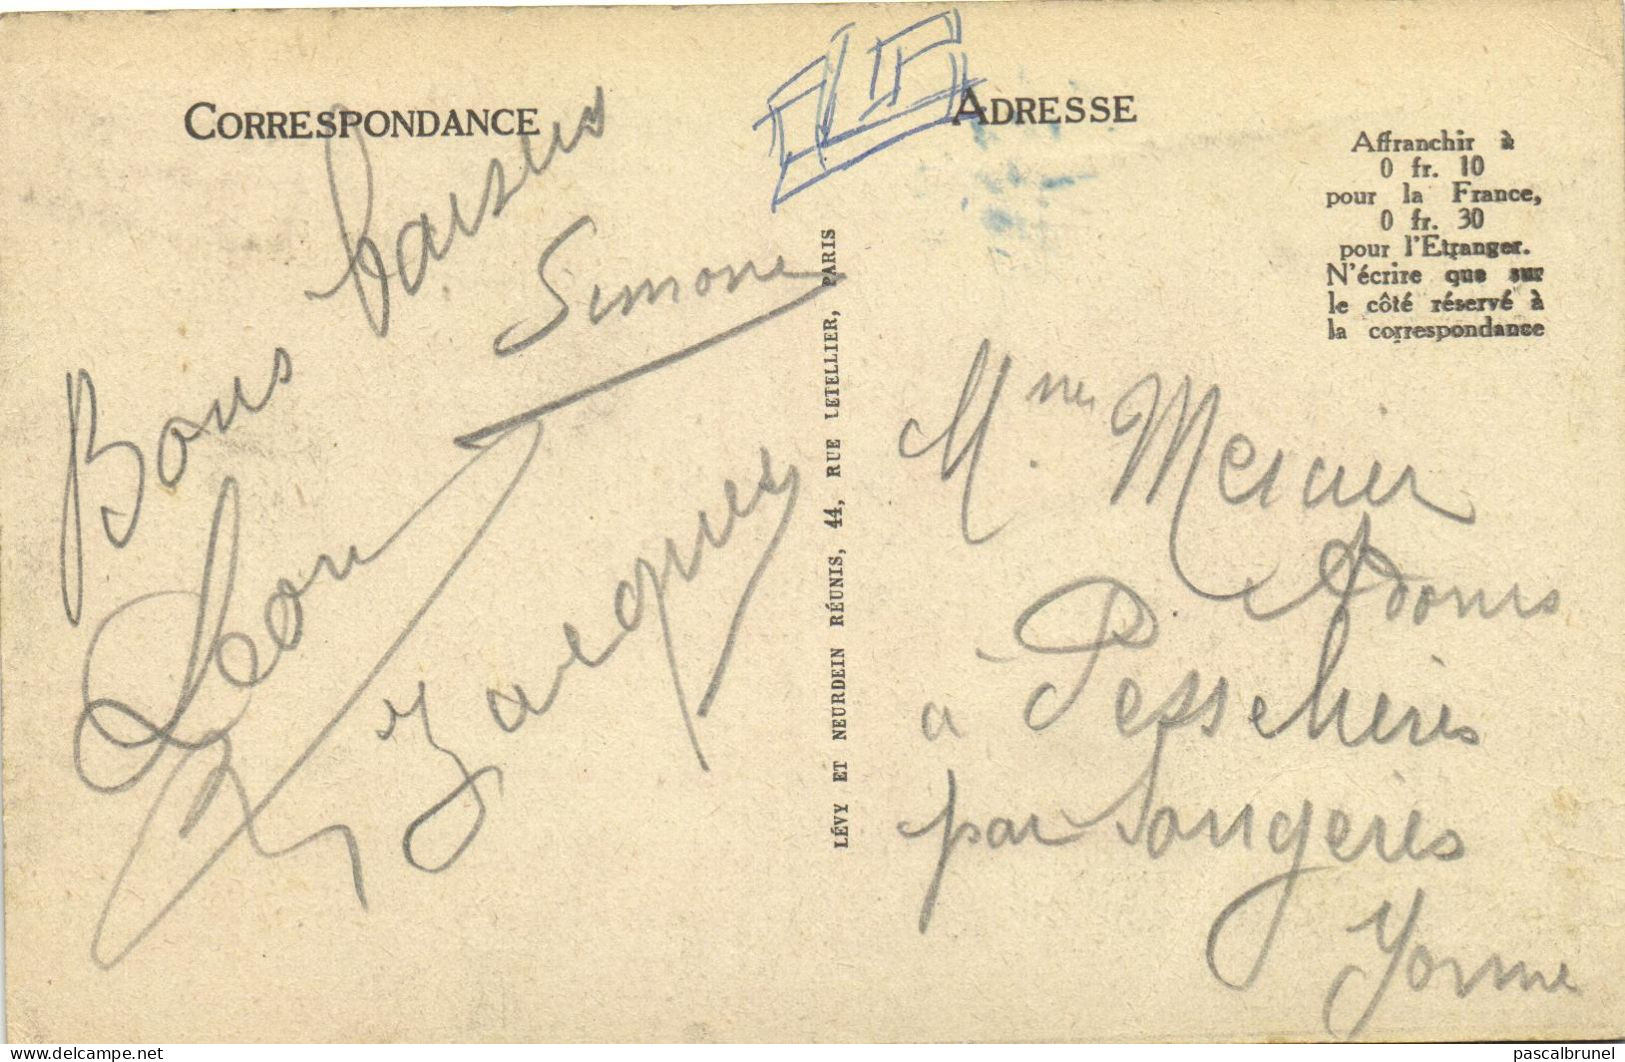 CORRESPONDANCE
ADRESSE
Affranchir à
0 fr. 10
pour la France,
0 fr. 30
pour l'Etranger.
N'écrire que sur
le côté réservé à
la correspondance
Bons baisers
Simone
Léon
Jacques
LÉVY ET NEURDEIN RÉUNIS, 44, RUE LETELLIER, PARIS
Mme Mercier
Adonis
à Pesselières
par Sougères
Yonne
pascalbrunel